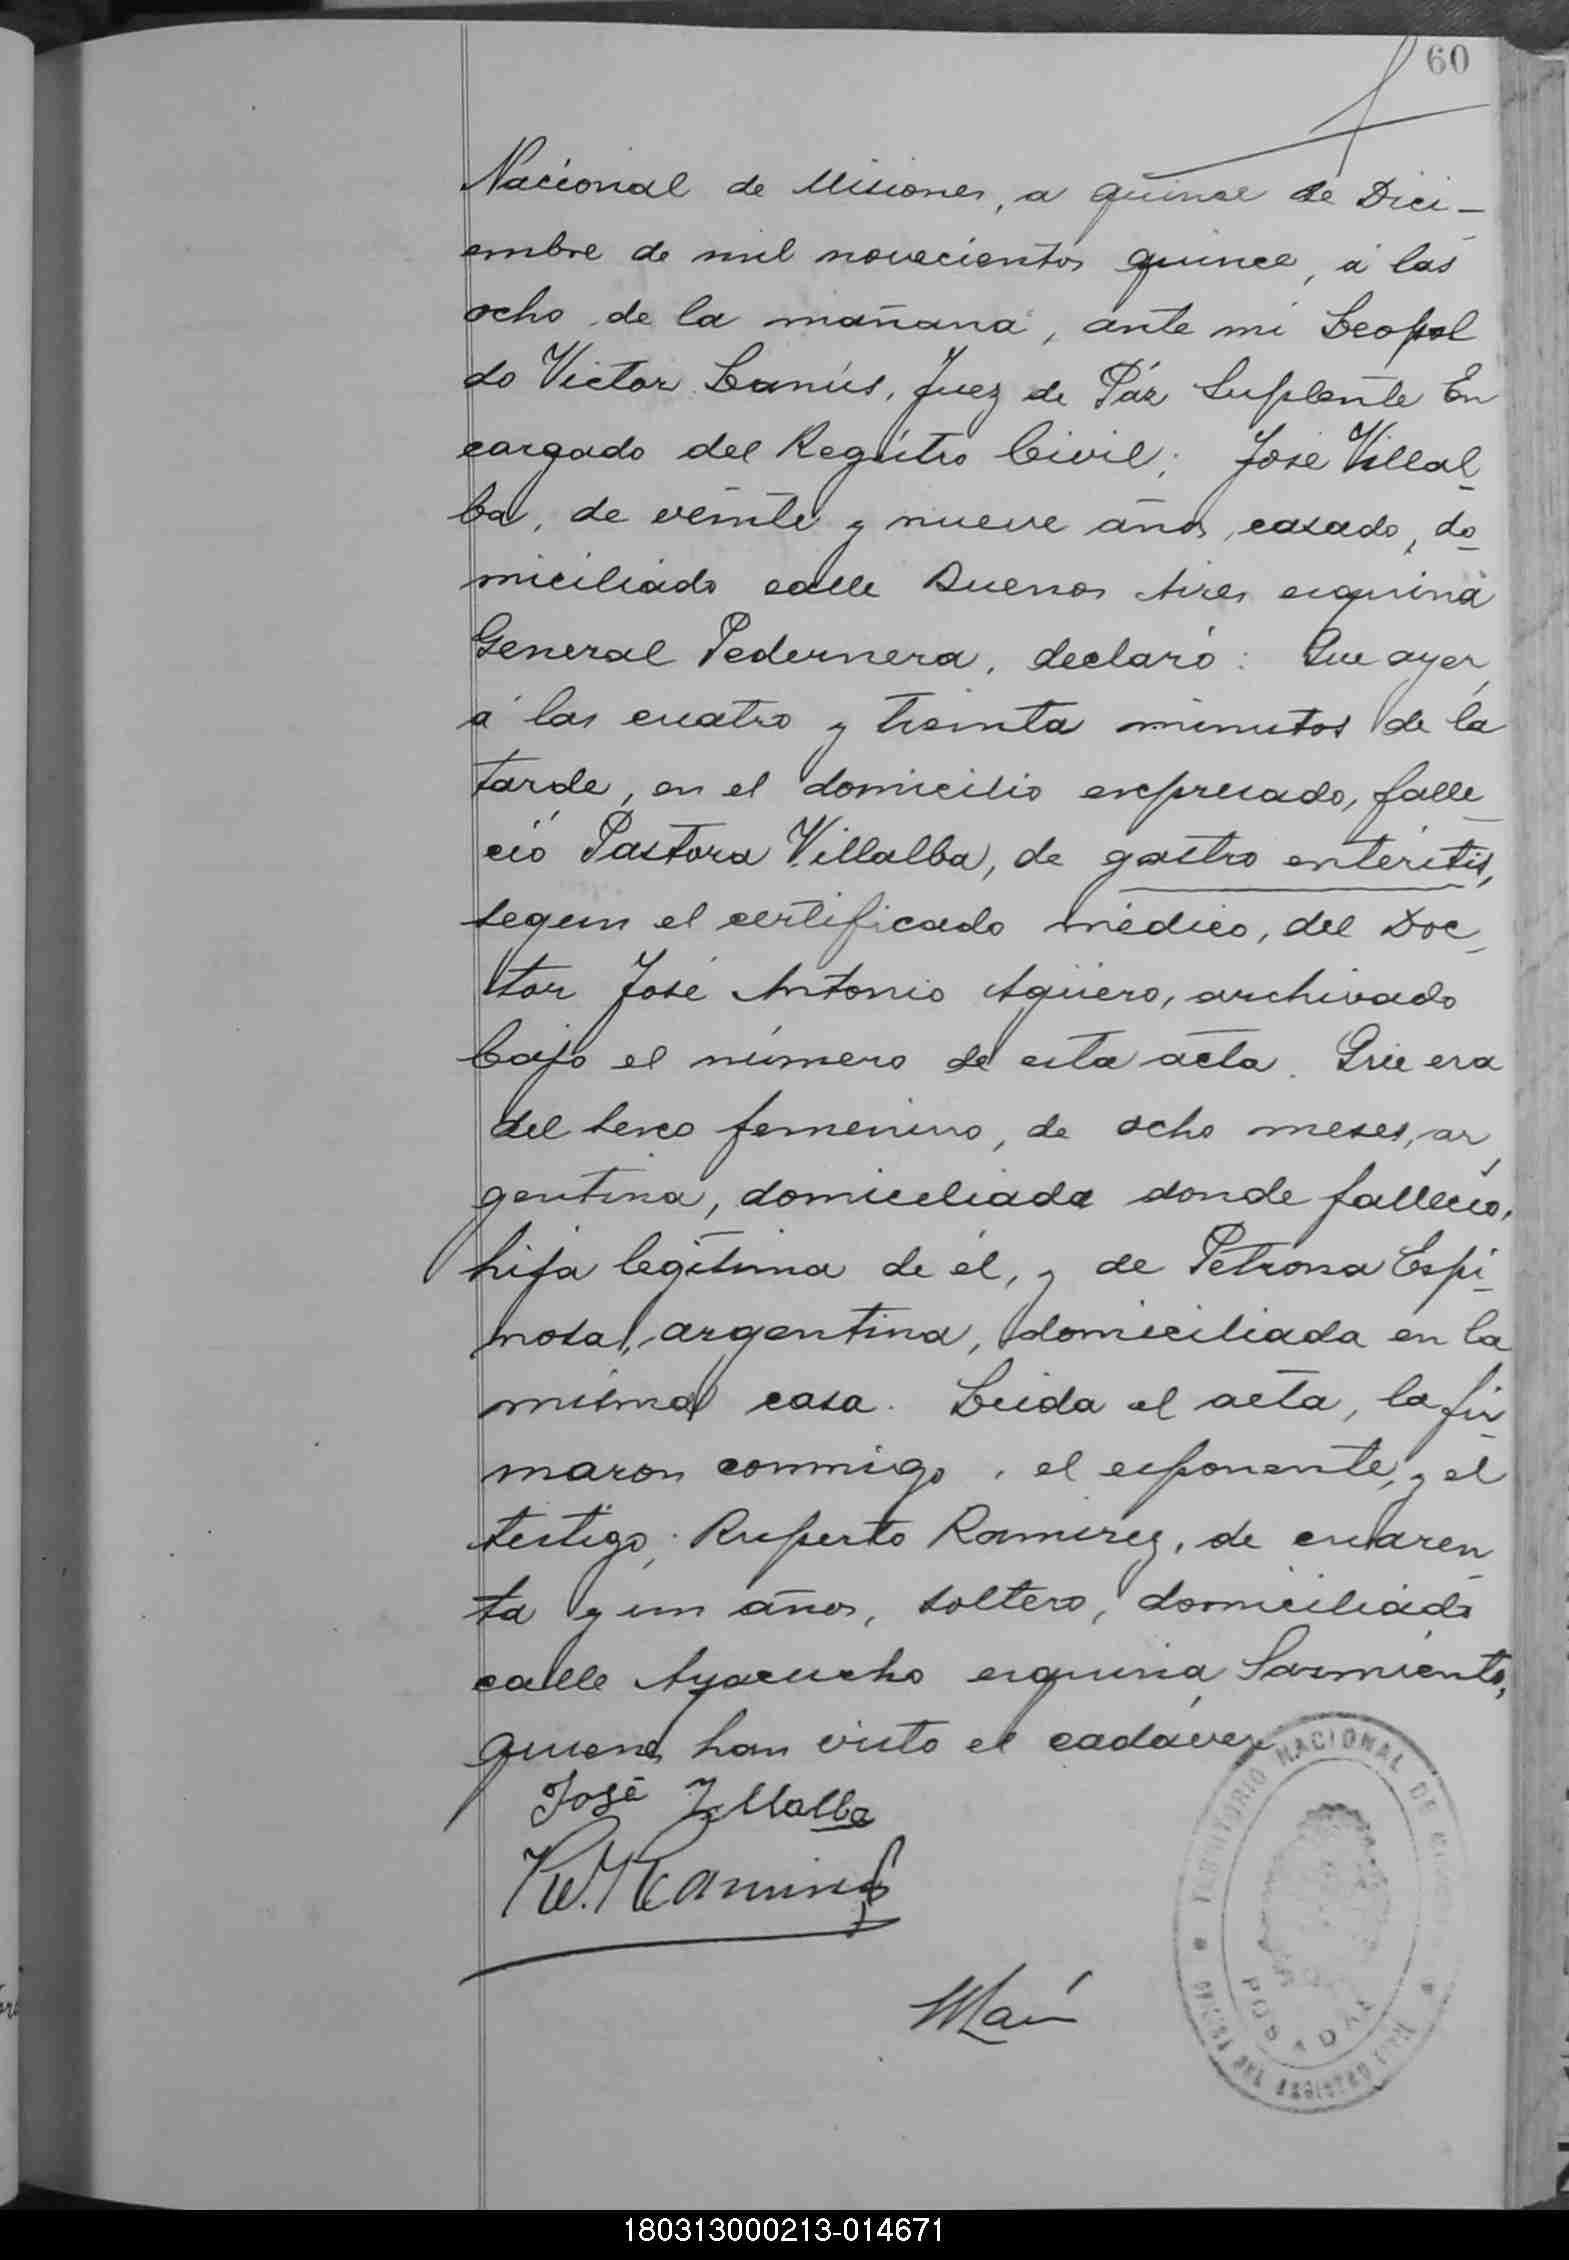 60
Nacional de Misiones, a quince de Dici-
embre de mil novecientos quince, á las
ocho de la mañana, ante mi Leopol
do Victor Lanús, Juez de Páz Suplente En
cargado del Registro Civil; José Villal-
ba, de veinte y nueve años, casado, do-
miciliado calle Buenos Aires esquina
General Pedernera, declaró: Que ayer,
á las cuatro y treinta minutos de la
tarde, en el domicilio expresado, falle-
ció Pastora Villalba, de gastro enteritis,
segun el certificado médico, del Doc-
tor José Antonio Agüero, archivado
bajo el número de esta acta. Que era
del sexo femenino, de ocho meses, ar-
gentina, domiciliada donde falleció,
hija legítima de él, y de Petrona Espi-
nosa, argentina, domiciliada en la
misma casa. Leida el acta, la fir-
maron conmigo, el exponente, y el
testigo; Ruperto Ramirez, de cuaren-
ta y un años, soltero, domiciliado
calle Ayacucho esquina Sarmiento,
quienes han visto el cadáver
José Villalba
TERRITORIO NACIONAL DE MISIONES
POSADAS
OFICINA DEL REGISTRO CIVIL
180313000213-014671